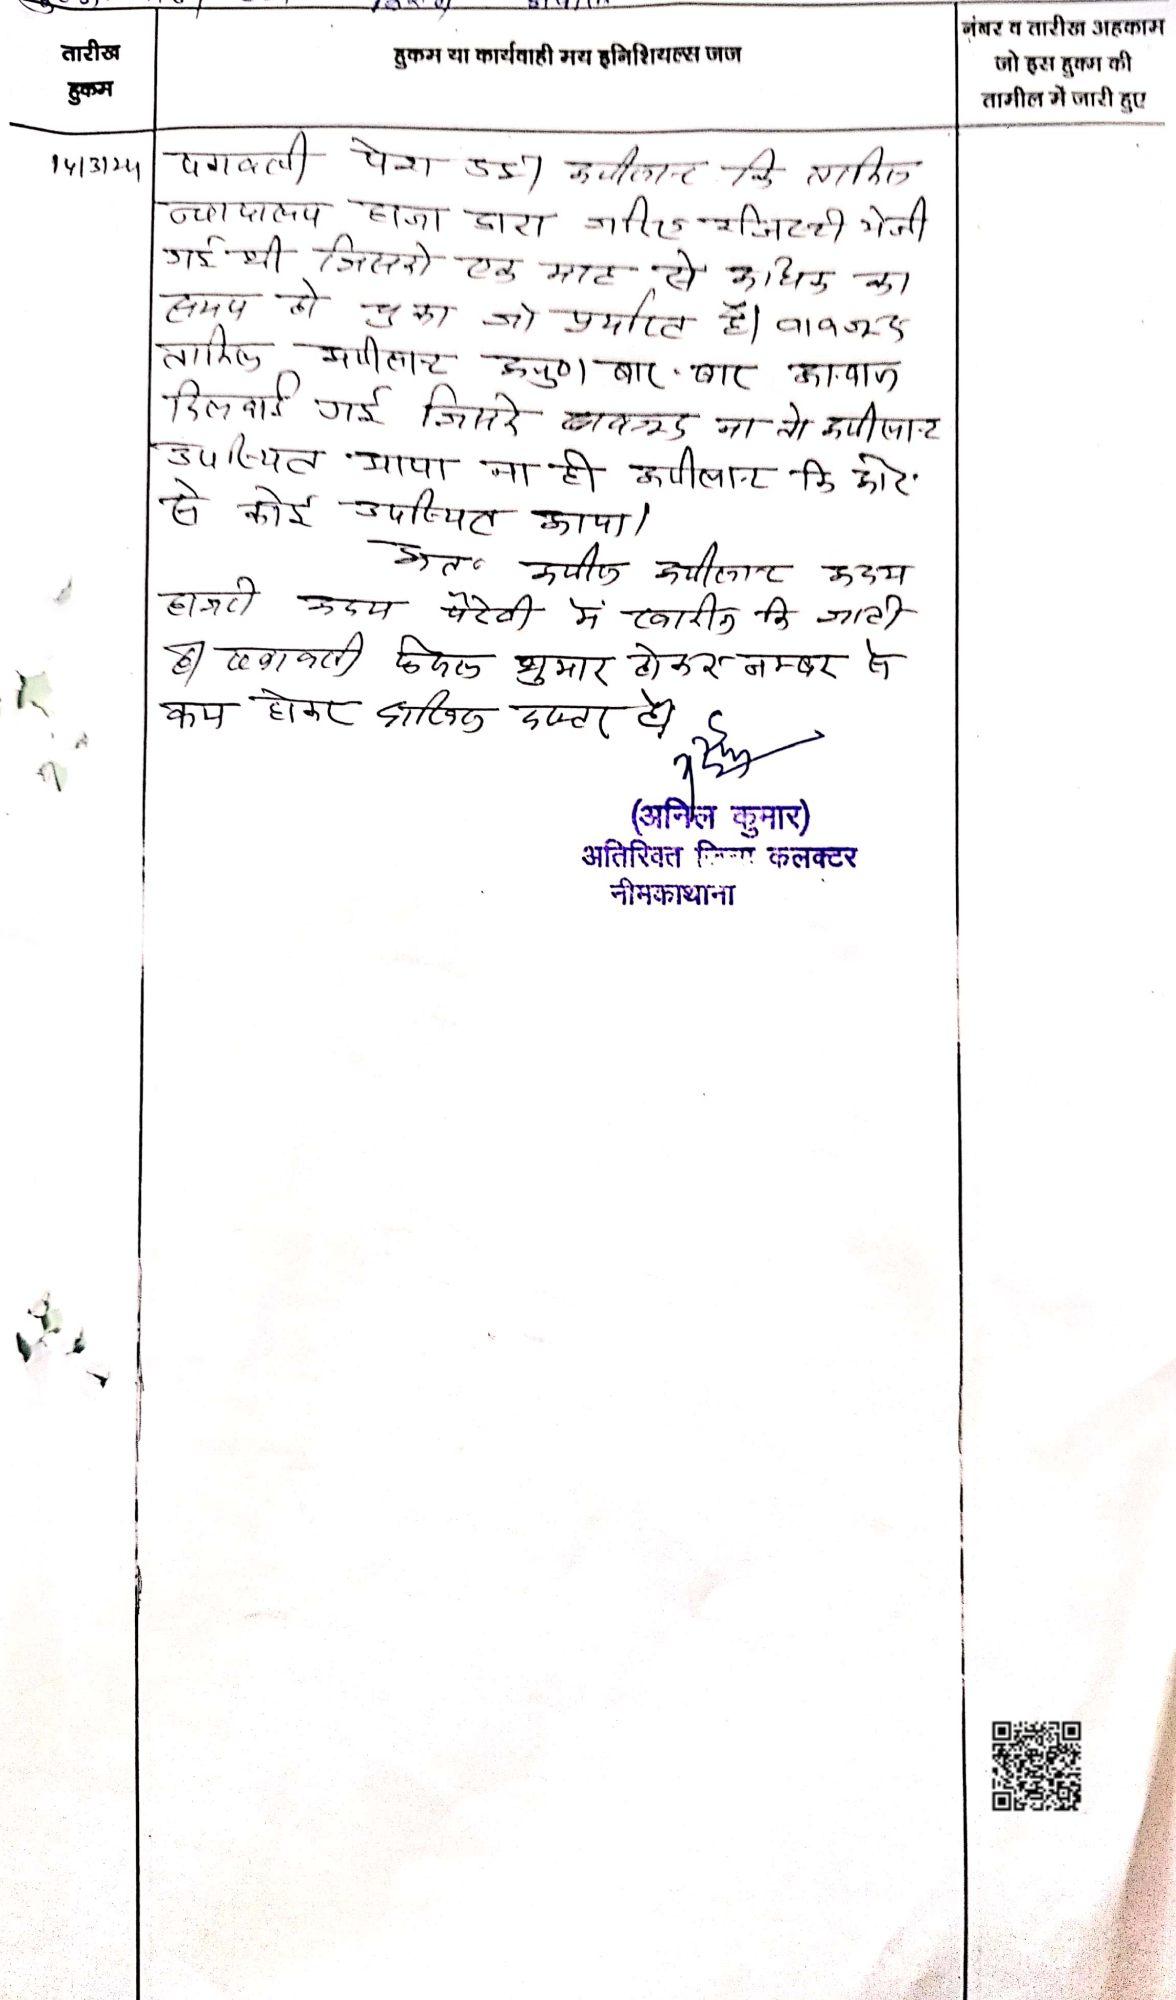 तारीख
हुकम
हुकम या कार्यवाही मय इनिशियल्स जज
नंबर व तारीख अहकाम
जो इस हुक्म की
तामील में जारी हुए
पत्रावली पेश हुई। अपीलान्ट कि तामिल
न्यायालय हाजा द्वारा जरिए रजिस्टरी भेजी
गई थी जिसको एक माह से अधिक का
समय हो चुका जो प्रर्याप्त है। बावजूद
तामिल अपीलान्ट बार-बार आवाज
दिलवाई गई जिसके बावजूद ना तो अपीलान्ट
उपस्थित आया ना ही अपीलान्ट कि ओर
से कोई उपस्थित आया।
अतः अपील अपीलान्ट अदम
हाजरी अदम पैरेवी में खारीज कि जाती
है। पत्रावली फैसल शुमार होकर नम्बर से
कम होकर दाखिल दफ्तर हो।
(अनिल कुमार)
अतिरिक्त जिला कलक्टर
नीमकाथाना